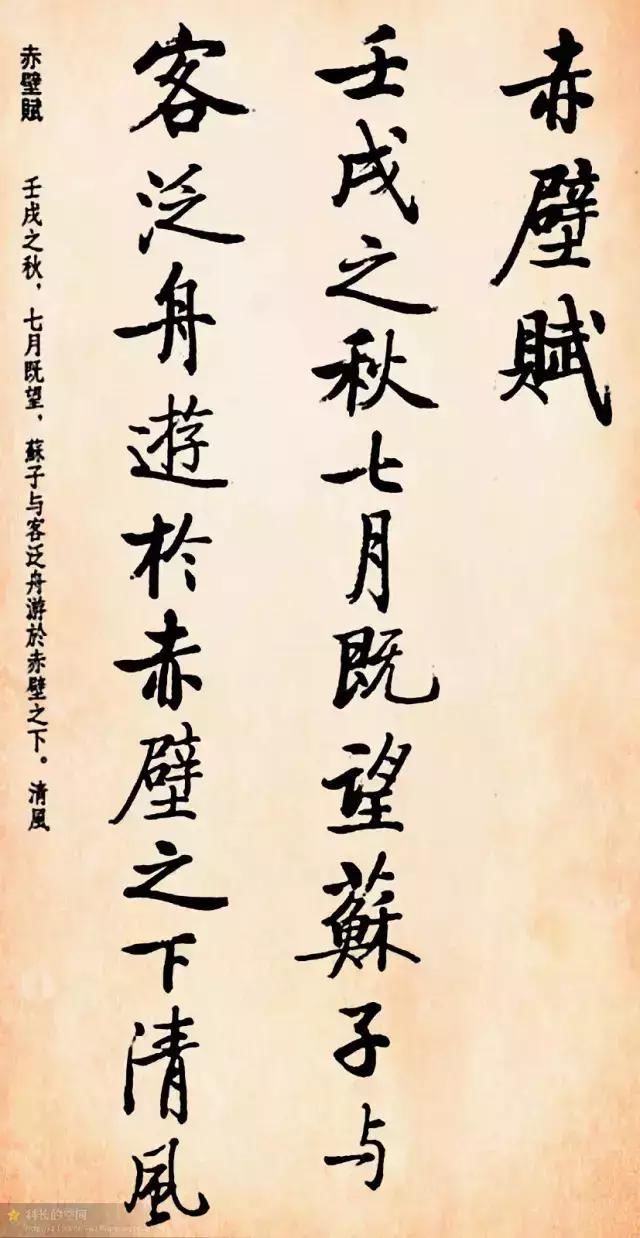 赤壁賦
壬戌之秋七月既望蘇子与
客泛舟遊於赤壁之下清風
赤壁賦 壬戌之秋，七月既望，蘇子与客泛舟游於赤壁之下。清風
科长的空间